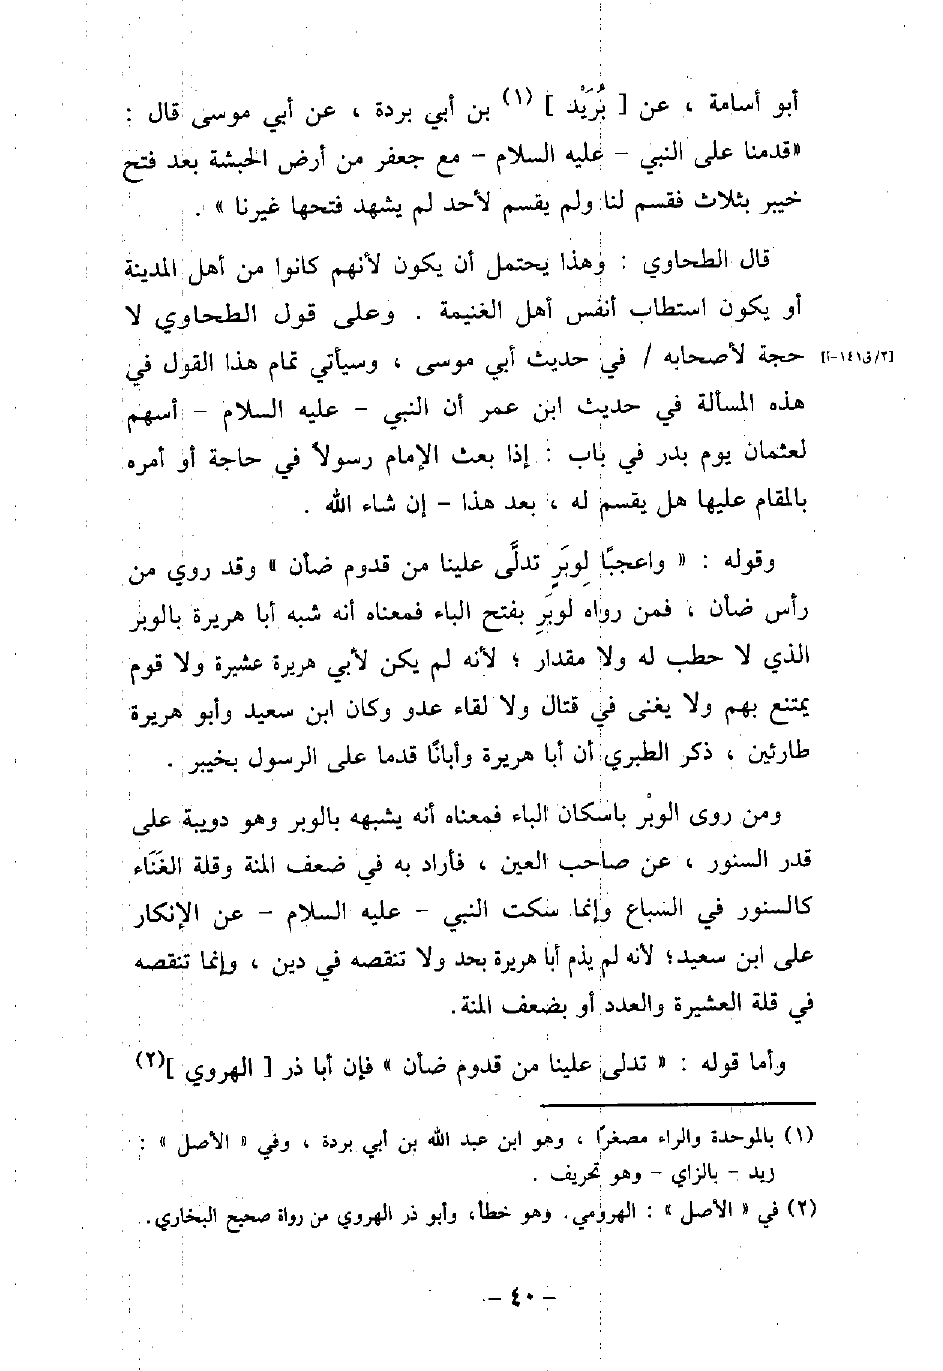 أبو أسامة ، عن [ بُرَيْد ] (١) بن أبي بردة ، عن أبي موسى قال :
«قدمنا على النبي - عليه السلام - مع جعفر من أرض الحبشة بعد فتح
خيبر بثلاث فقسم لنا ولم يقسم لأحد لم يشهد فتحها غيرنا » .
قال الطحاوي : وهذا يحتمل أن يكون لأنهم كانوا من أهل المدينة
أو يكون استطاب أنفس أهل الغنيمة . وعلى قول الطحاوي لا
[٢/ق١٤١-أ] حجة لأصحابه / في حديث أبي موسى ، وسيأتي تمام هذا القول في
هذه المسألة في حديث ابن عمر أن النبي - عليه السلام - أسهم
لعثمان يوم بدر في باب : إذا بعث الإمام رسولاً في حاجة أو أمره
بالمقام عليها هل يقسم له ، بعد هذا - إن شاء الله .
وقوله : « واعجبًا لِوبَرٍ تدلَّى علينا من قدوم ضأن » وقد روي من
رأس ضأن ، فمن رواه لوبَرِ بفتح الباء فمعناه أنه شبه أبا هريرة بالوبر
الذي لا حطب له ولا مقدار ؛ لأنه لم يكن لأبي هريرة عشيرة ولا قوم
يمتنع بهم ولا يغنى في قتال ولا لقاء عدو وكان ابن سعيد وأبو هريرة
طارئين ، ذكر الطبري أن أبا هريرة وأبانًا قدما على الرسول بخيبر .
ومن روى الوبْر باسكان الباء فمعناه أنه يشبهه بالوبر وهو دويبة على
قدر السنور ، عن صاحب العين ، فأراد به في ضعف المنة وقلة الغَنَاء
كالسنور في السباع وإنما سكت النبي - عليه السلام - عن الإنكار
على ابن سعيد؛ لأنه لم يذم أبا هريرة بحد ولا تنقصه في دين ، وإنما تنقصه
في قلة العشيرة والعدد أو بضعف المنة.
وأما قوله : « تدلى علينا من قدوم ضأن » فإن أبا ذر [ الهروي ](٢)
(١) بالموحدة والراء مصغرًا ، وهو ابن عبد الله بن أبي بردة ، وفي « الأصل » :
زيد - بالزاي - وهو تحريف .
(٢) في « الأصل » : الهرومي. وهو خطأ، وأبو ذر الهروي من رواة صحيح البخاري.
- ٤٠ -